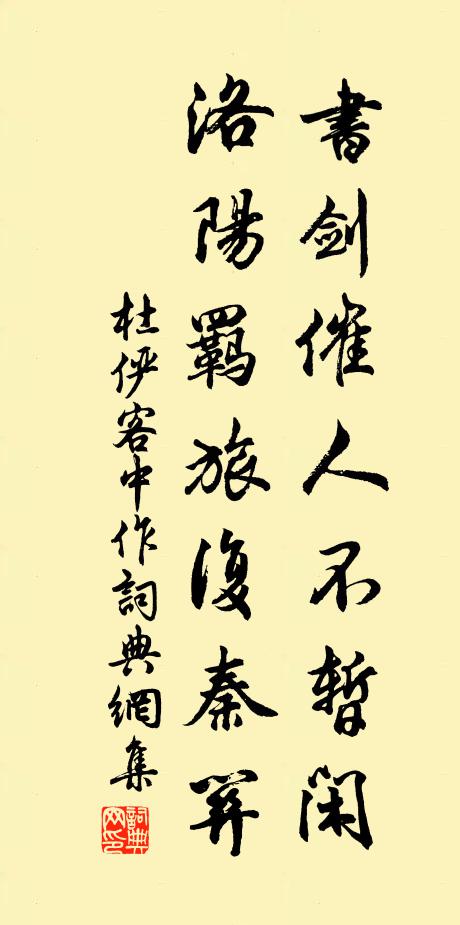 書劍催人不暫閑
洛陽羈旅復秦關
杜俨客中作詞典網集
詞典
网印